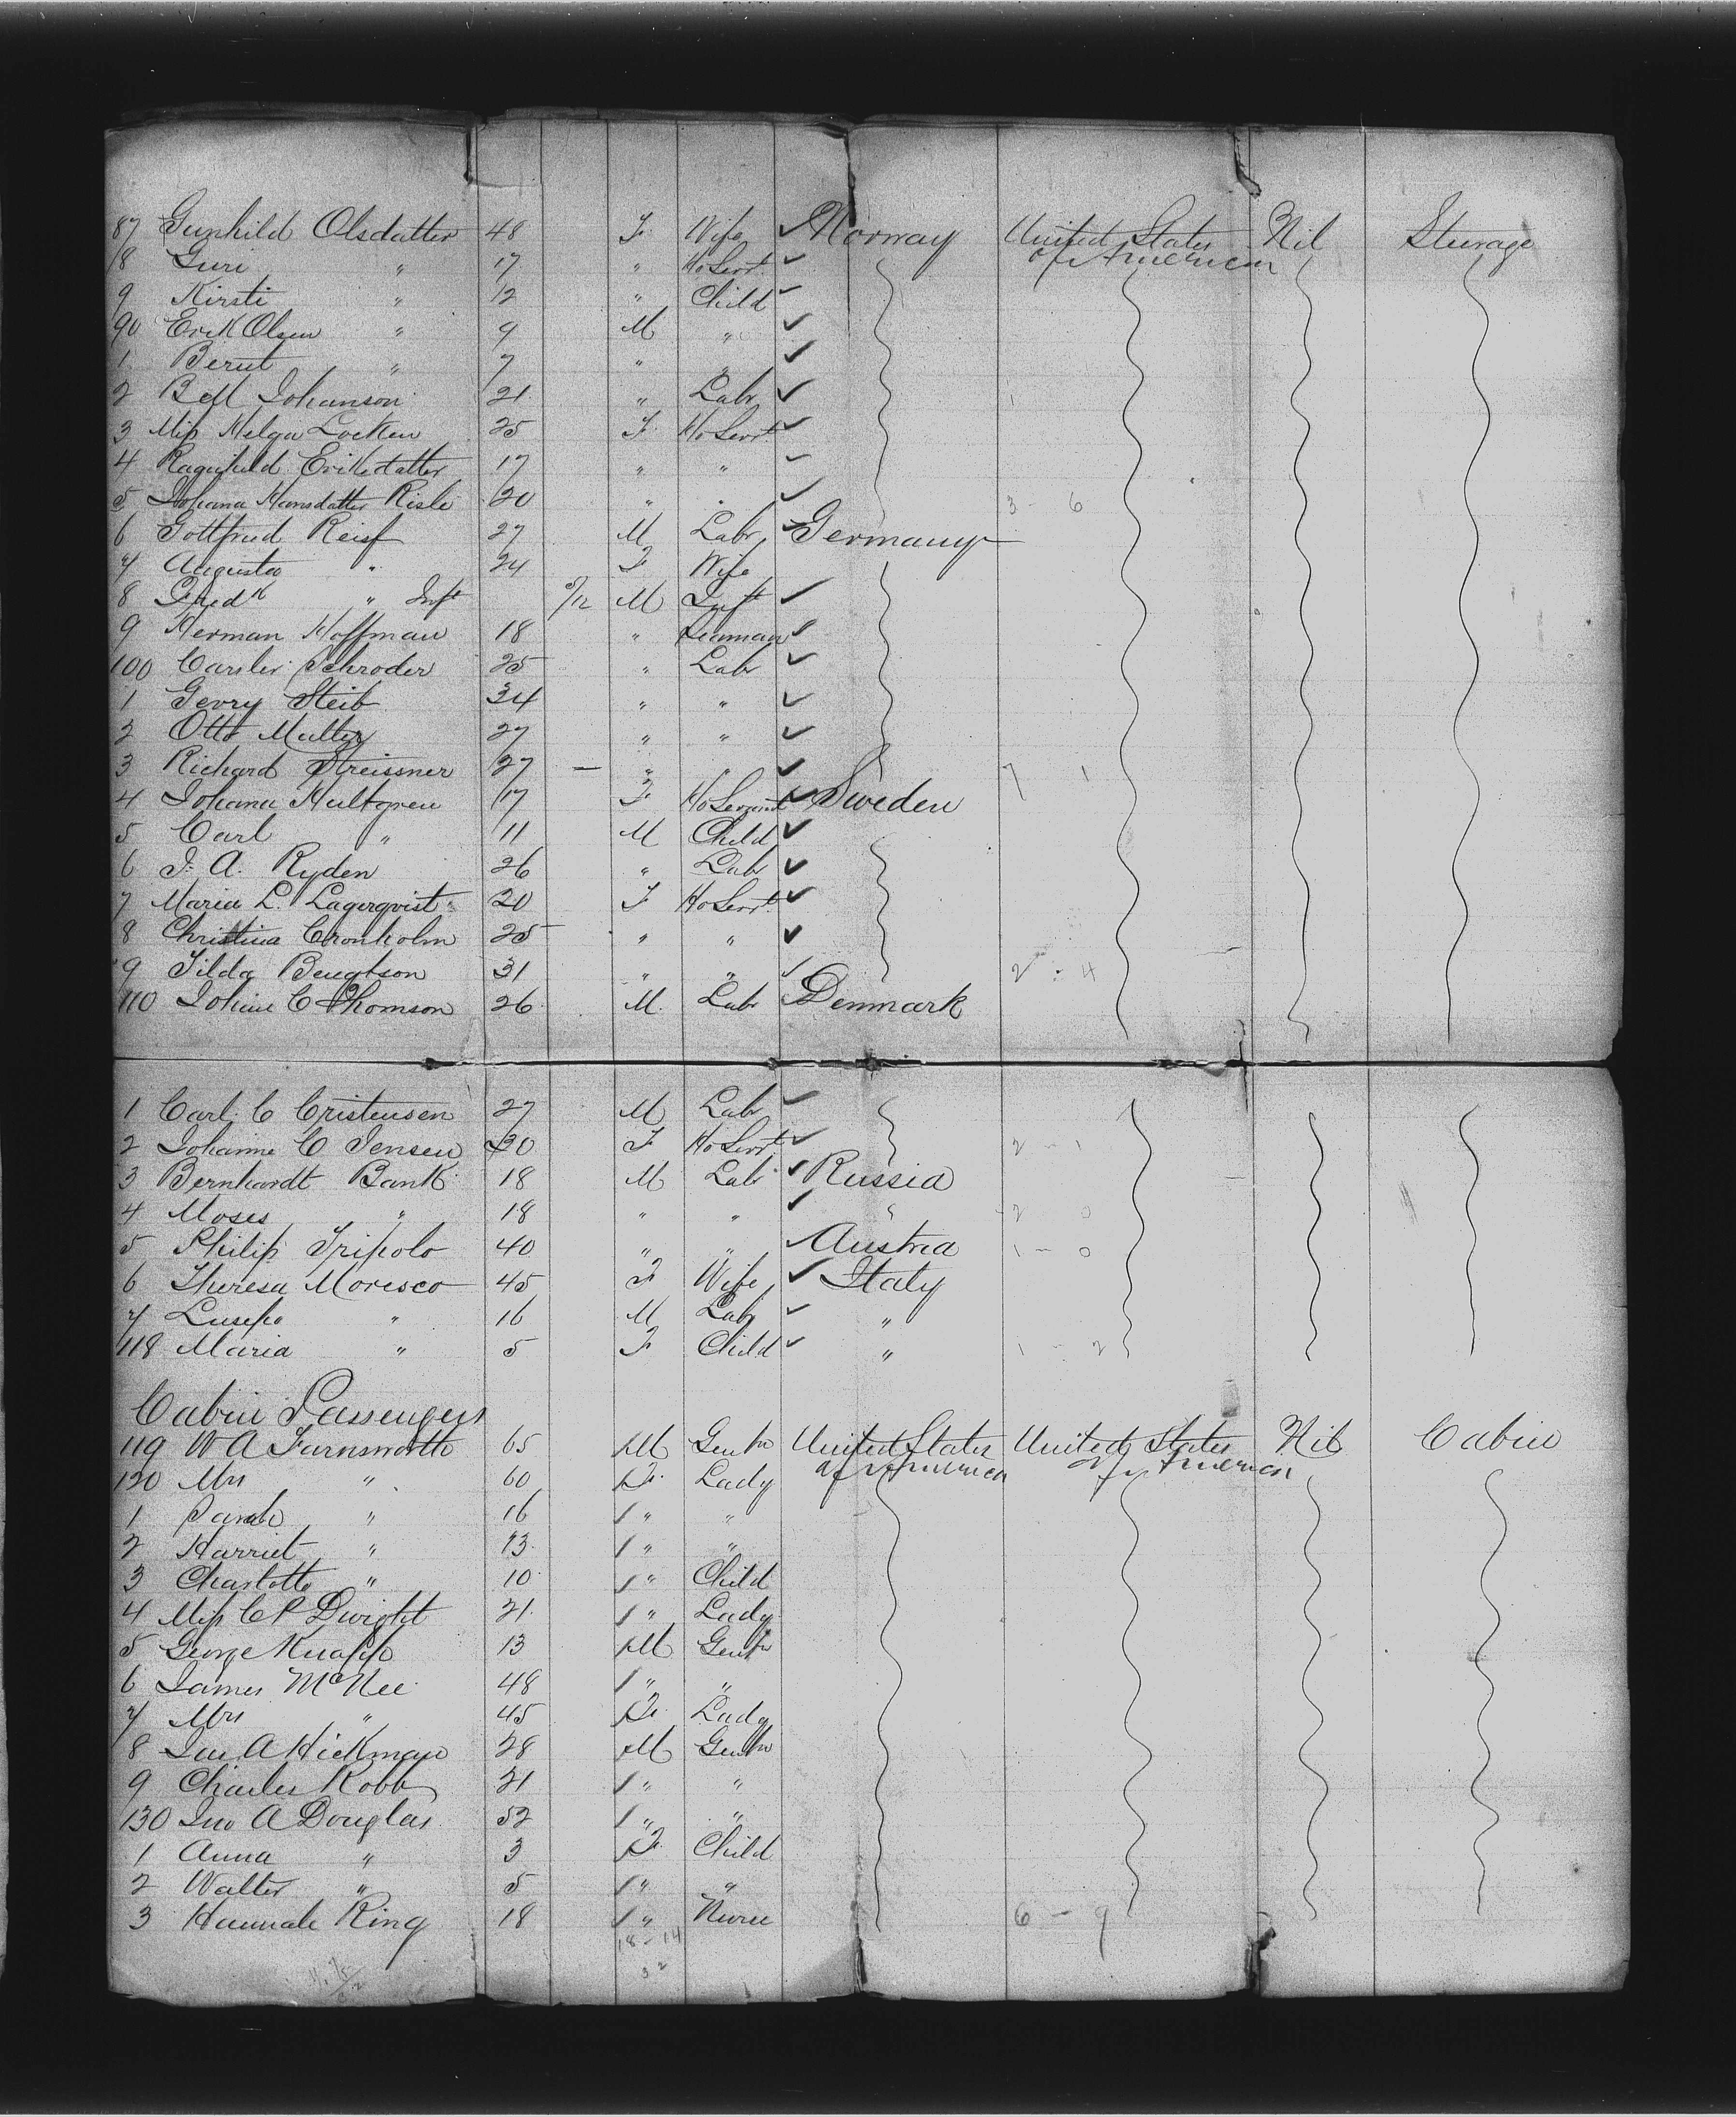 87 Gunhild Olsdatter 48 F. Wife Norway United States of America Nil Steerage
/8 Guri " 17 " Ho Servt.
9 Kirsti " 12 " Child
90 Erik Olsen " 9 M "
1 Berut " 7 " "
2 Johanson 21 " Labr
3 Miss Helga Locken 25 F. Ho Servt
4 Ragnhild Eriksdatter 17 " "
5 Johana Hansdatter Risle 20 " " 3 - 6
6 Gottfried Reisf 27 M Labr Germany
7 Augusta " 24 F Wife
8 Fredk " Inft 5/12 M Inft
9 Herman Hoffman 18 " Seaman
100 Schroder 25 " Labr
1 Gerry Steib 34 " "
2 Otto Muller 27 " "
3 Richard Streissner 27 — " " 7 1
4 Johana Hultgren 17 F Ho Servant Sweden
5 Carl " 11 M Child
6 J. A. Ryden 26 " Labr
7 Maria L. Lagerqvist 20 F Ho Servt.
8 Christina Cronholm 25 " "
9 Tilda Bengtson 31 " " 2 : 4
110 Johan C Thomson 26 M. Labr Denmark
1 Carl C Cristensen 27 M Labr
2 Johanne C Jensen 30 F Ho Servt 2 - 1
3 Bernhardt Bank 18 M Labr Russia
4 Moses " 18 " " " 2 0
5 Philip Tripolo 40 " " Austria 1 - 0
6 Theresa Moresco 45 F Wife Italy
7 Lusepo " 16 M Labr "
118 Maria " 5 F Child " 1 - 2
Cabin Passengers
119 W A Farnsworth 65 M Gentn United States of America United States of America Nil Cabin
120 Mrs " 60 F. Lady
1 Sarah " 16 " "
2 Harriet " 13 " "
3 Charlotte " 10 " Child
4 Miss C P Dwight 21 " Lady
5 George Knapp 13 M Gentn
6 James McNee 48 " "
7 Mrs " 45 F. Lady
8 Jas. A Hickman 28 M Gentn
9 Charles Robb 21 " "
130 Jno A Douglas 52 " "
1 Anna " 3 F. Child
2 Walter " 5 " "
3 Hannah King 18 " Nurse 6 - 9
18 - 14
32